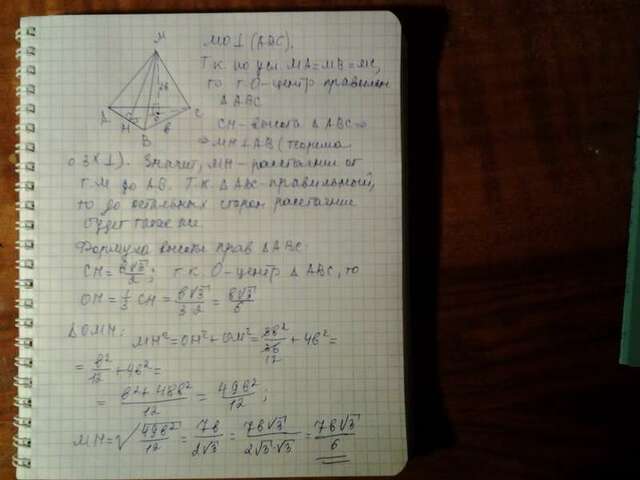 M
MO⊥(ABC).
Т.к. по усл. MA=MB=MC,
то т.O-центр правильн
ΔABC
2в
A
C
H
O
B
в
CH-высота ΔABC⇒
⇒ MH⊥AB (теорема
о 3х⊥). Значит, MH-расстояние от
т.M до AB. Т.к. ΔABC-правильный,
то до остальных сторон расстояние
будет такое же.
Формула высоты прав ΔABC:
CH=в√3/2; т.к. O-центр ΔABC, то
OH=1/3 CH=в√3/3·2=в√3/6
ΔOMH:
MH²=OH²+OM²=3в²/36+4в²=
12
=в²/12+4в²=
=в²+48в²/12=49в²/12;
MH=√49в²/12=7в/2√3=7в√3/2√3·√3=7в√3/6